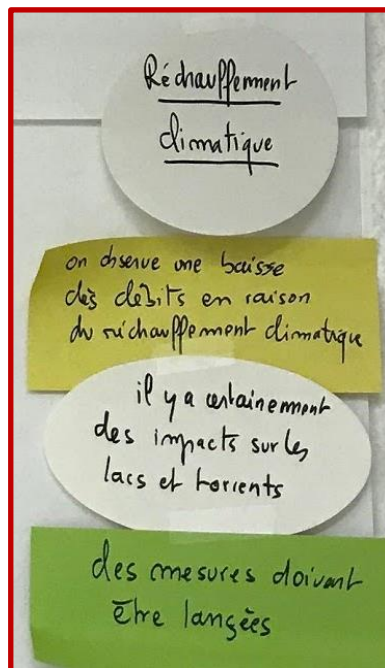 Réchauffement
climatique
on observe une baisse
des débits en raison
du réchauffement climatique
il y a certainement
des impacts sur les
lacs et torrents
des mesures doivent
être lancées